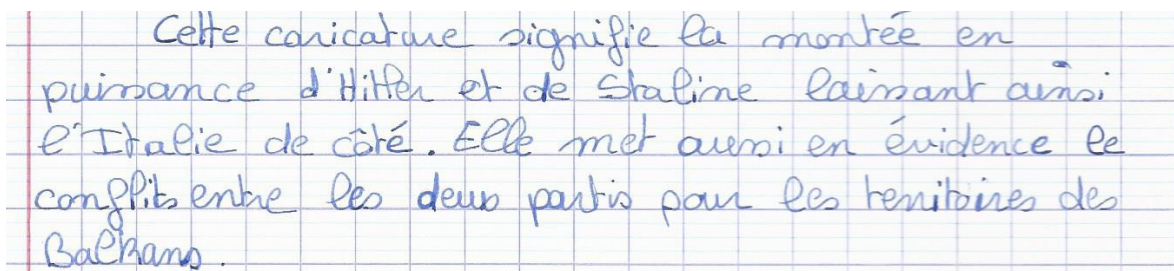 Cette caricature signifie la montée en
puissance d'Hitler et de Staline laissant ainsi
l'Italie de côté. Elle met aussi en évidence le
conflits entre les deux partis pour les territoires des
Balkans.